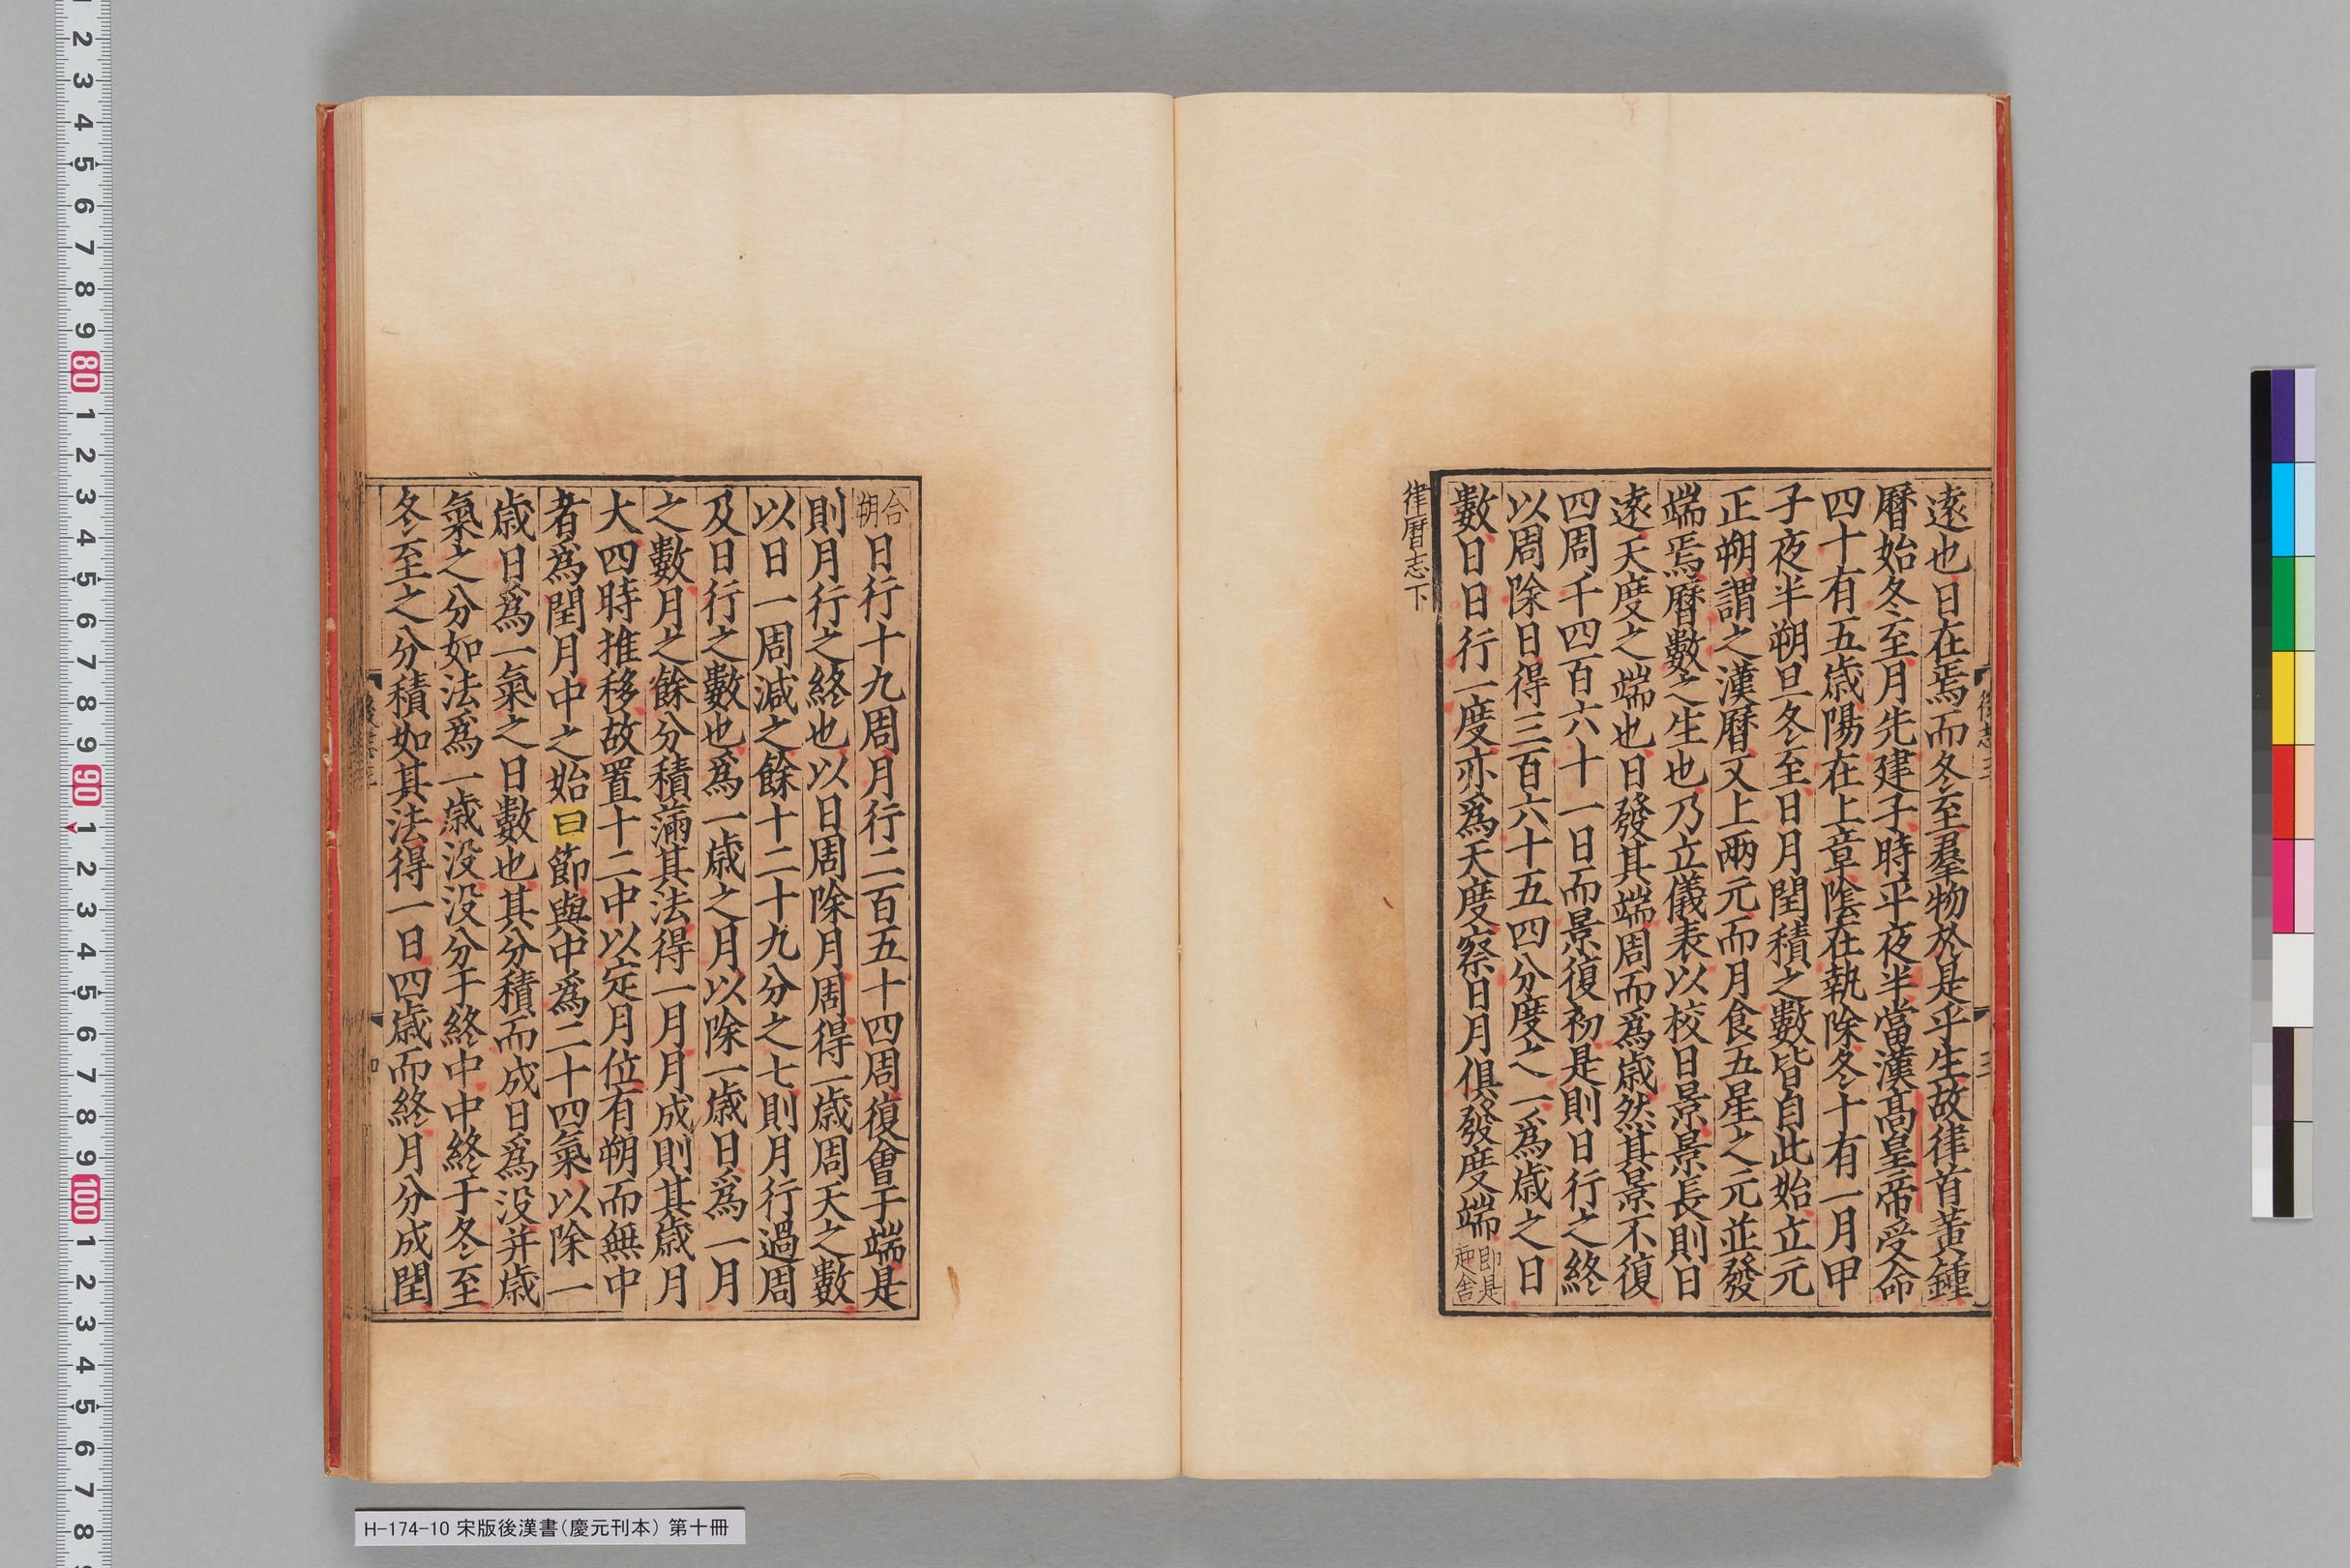 遠也日在焉而冬至羣物於是乎生故律首黃鍾
曆始冬至月先建子時平夜半當漢髙皇帝受命
四十有五歳陽在上章陰在執除冬十有一月甲
子夜半朔旦冬至日月閏積之數皆自此始立元
正朔謂之漢曆又上兩元而月食五星之元並發
端焉曆數之生也乃立儀表以校日景景長則日
遠天度之端也日發其端周而爲歳然其景不復
四周千四百六十一日而景復初是則日行之終
以周除日得三百六十五四分度之一爲歳之日
數日日行一度亦爲天度察日月俱發度端即是
迎舍
律曆志下
合
朔日行十九周月行二百五十四周復會于端是
則月行之終也以日周除月周得一歳周天之數
以日一周減之餘十二十九分之七則月行過周
及日行之數也爲一歳之月以除一歳日爲一月
之數月之餘分積滿其法得一月月成則其歳月
大四時推移故置十二中以定月位有朔而無中
者爲閏月中之始曰節與中爲二十四氣以除一
歳日爲一氣之日數也其分積而成日爲没并歳
氣之分如法爲一歳没没分于終中中終于冬至
冬至之分積如其法得一日四歳而終月分成閏
H-174-10 宋版後漢書（慶元刊本） 第十冊